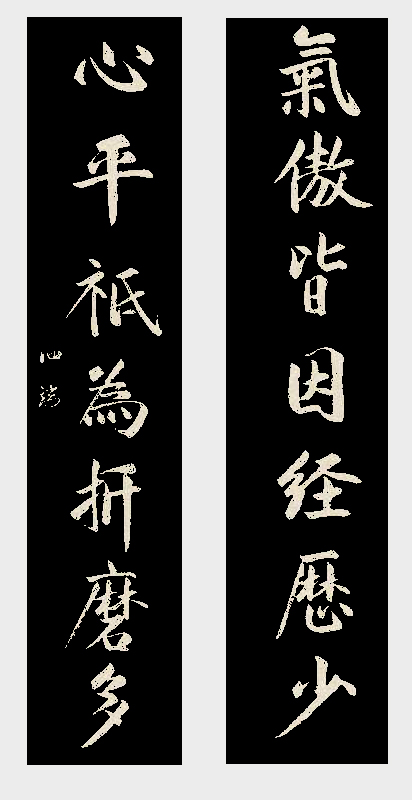 氣傲皆因経歷少
心平祇為折磨多